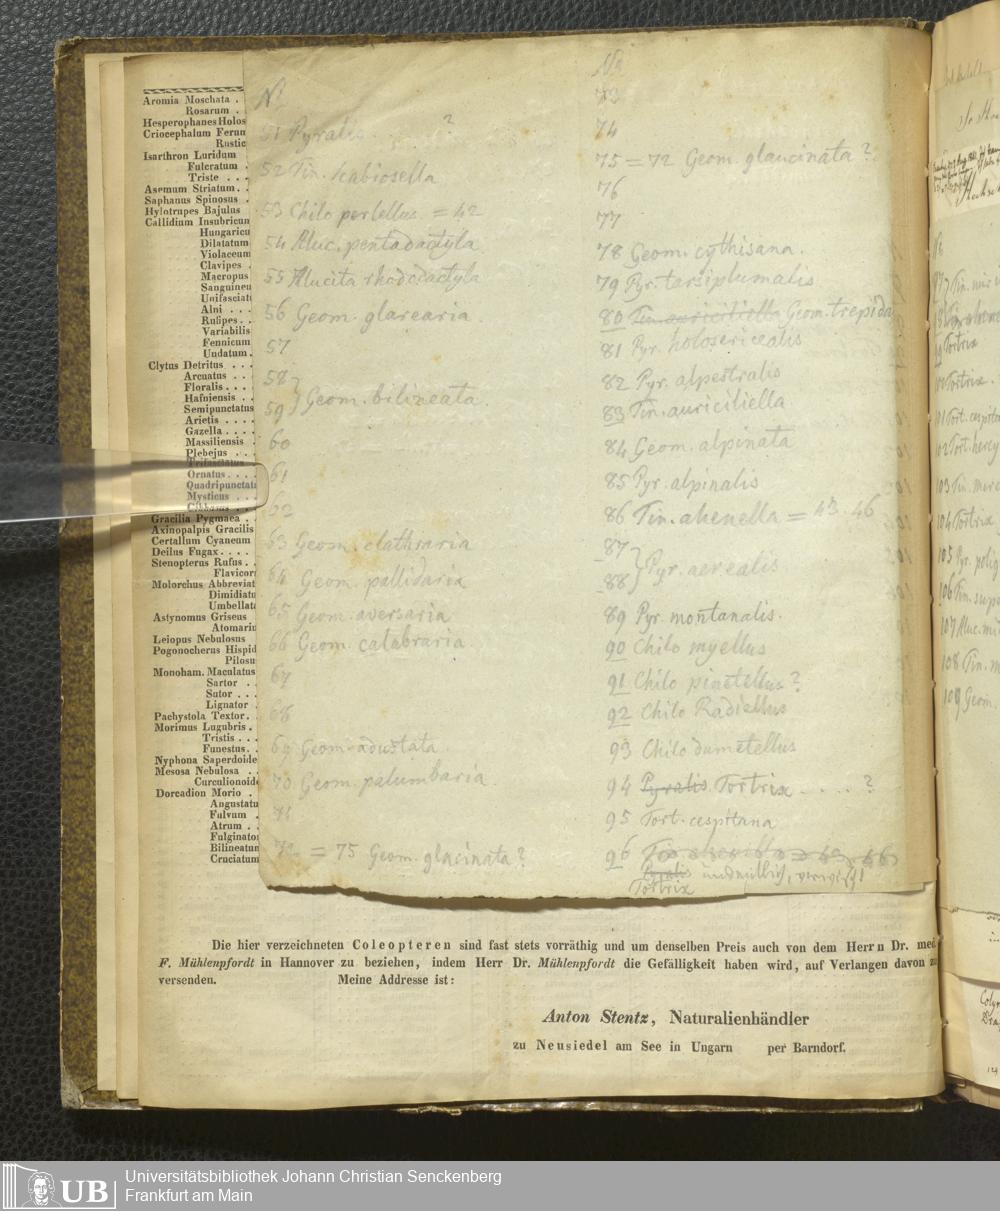 Aromia Moschata .
Rosarum . .
Hesperophanes Holos
Criocephalum Ferum
Rustic
Isarthron Luridum
Fulcratum .
Triste . . .
Asemum Striatum. .
Saphanus Spinosus .
Hylotrupes Bajulus
Callidium Insubricum
Hungaricu
Dilatatum
Violaceum
Clavipes .
Macropus
Sanguineu
Unifasciatu
Alni . . .
Rufipes. .
Variabilis
Fennicum
Undatum.
Clytus Detritus . . .
Arcuatus . .
Floralis. . .
Hafniensis . .
Semipunctatus
Arietis . . .
Gazella . . . .
Massiliensis
Plebejus . . .
Trifasciatus
Ornatus. . . .
Quadripunctatu
Mysticus . . .
Gracilia Pygmaea .
Axinopalpis Gracilis
Certallum Cyaneum
Deilus Fugax. . . .
Stenopterus Rufus. .
Flavicor
Molorchus Abbreviat
Dimidiatu
Umbellata
Astynomus Griseus
Atomariu
Leiopus Nebulosus
Pogonocherus Hispid
Pilosu
Monoham. Maculatus
Sartor . .
Sutor . . .
Lignator .
Pachystola Textor. .
Morimus Lugubris. .
Tristis . . .
Funestus. .
Nyphona Saperdoide
Mesosa Nebulosa . .
Curculionoid
Dorcadion Morio . .
Angustatu
Fulvum .
Atrum . .
Fulginator
Bilineatum
Cruciatum
N°
51 Pyralis . ?
52 Tin. scabiosella
53 Chilo perlellus = 42
54 Aluc. pentadactyla
55 Alucita rhododactyla
56 Geom. glarearia.
57
58
59 } Geom. bilineata.
60
61
62
63 Geom. clathraria
64 Geom. pallidaria
65 Geom. aversaria
66 Geom. calabraria.
67
68
69 Geom. adustata.
70 Geom. palumbaria
71
72 = 75 Geom. glacinata?
N°
73
74
75 = 72 Geom. glaucinata?
76
77
78 Geom. cythisana.
79 Pyr. tarsiplumalis
80 Tin. auriciliella Geom. trepida
81 Pyr. holosericealis
82 Pyr. alpestralis
83 Tin. auriciliella
84 Geom. alpinata
85 Pyr. alpinalis
86 Tin. ahenella = 43. 46
87
88 } Pyr. aerealis
89 Pyr. montanalis.
90 Chilo myellus
91 Chilo pinetellus?
92 Chilo Radiellus
93 Chilo dumetellus
94 Pyralis Tortrix . . . . ?
95 Tort. cespitana
96 Tin. ahenella = 43, 46
Pyralis
Tortrix
Die hier verzeichneten Coleopteren sind fast stets vorräthig und um denselben Preis auch von dem Herrn Dr. med.
F. Mühlenpfordt in Hannover zu beziehen, indem Herr Dr. Mühlenpfordt die Gefälligkeit haben wird, auf Verlangen davon zu
versenden. Meine Addresse ist:
Anton Stentz, Naturalienhändler
zu Neusiedel am See in Ungarn per Barndorf.
99 Tortrix
100 Tortrix.
101 Tort. cespita
102 Tort. hercy
103 Tin.
104 Tortrix
105 Pyr. polig
106 Tin.
107 Aluc. mi
108 Tin. m
109 Geom.
UB
Universitätsbibliothek Johann Christian Senckenberg
Frankfurt am Main